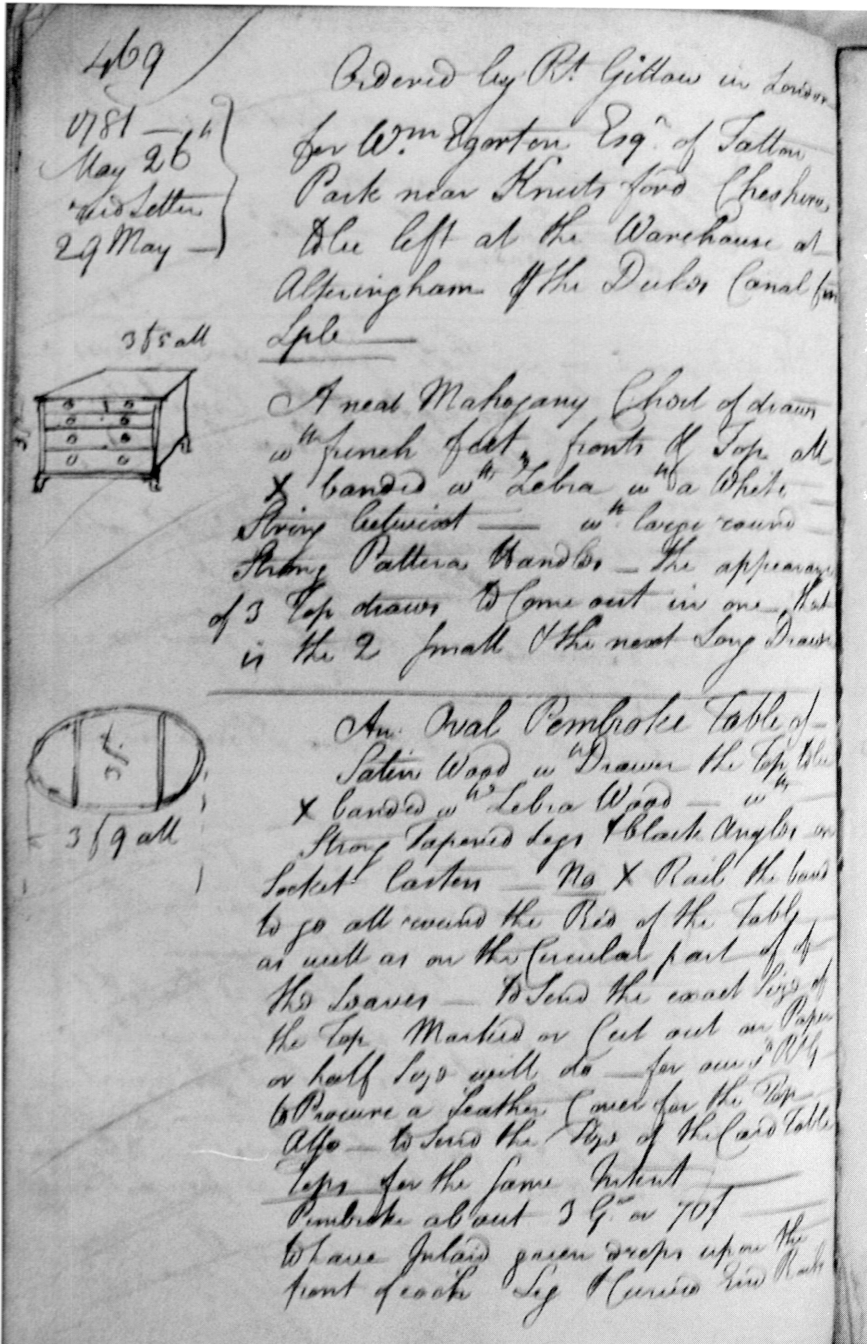 469
1781 —
May 26th
Letter
29 May —
Ordered by Rt Gillow in London
for Wm Egerton Esqr of Tatton
Park near Knutsford Cheshire
to be left at the Warehouse at
Altringham the Dukes Canal
Lple —
3f5 all
A neat Mahogany Chest of draws
wth french feet, fronts & Top all
X banded wth Zebra wth a White
String betwixt — wth large round
Strong Pattera Handles — the appearance
of 3 Top draws to Come out in one, that
is the 2 small & the next Long Drawer
3f
3f9 all
An Oval Pembroke Table of
Satin Wood wth Drawer the Top to be
X banded wth Zebra Wood — wth
Strong Tapered Legs & black Angles on
Socket Casters — No X Rail the band
to go all round the Bed of the Table
as well as on the Circular part of of
the Leaves — to Send the exact Size of
the Top Marked or Cut out on Paper
or half Size will do — for our RG
to Procure a Leather Cover for the Top
Also — to Send the Size of the Card Table
Tops for the Same Intent —
Pembroke about 3 Gs or 70/
to have Inlaid green drops upon the
front of each Leg & Curved End Rails